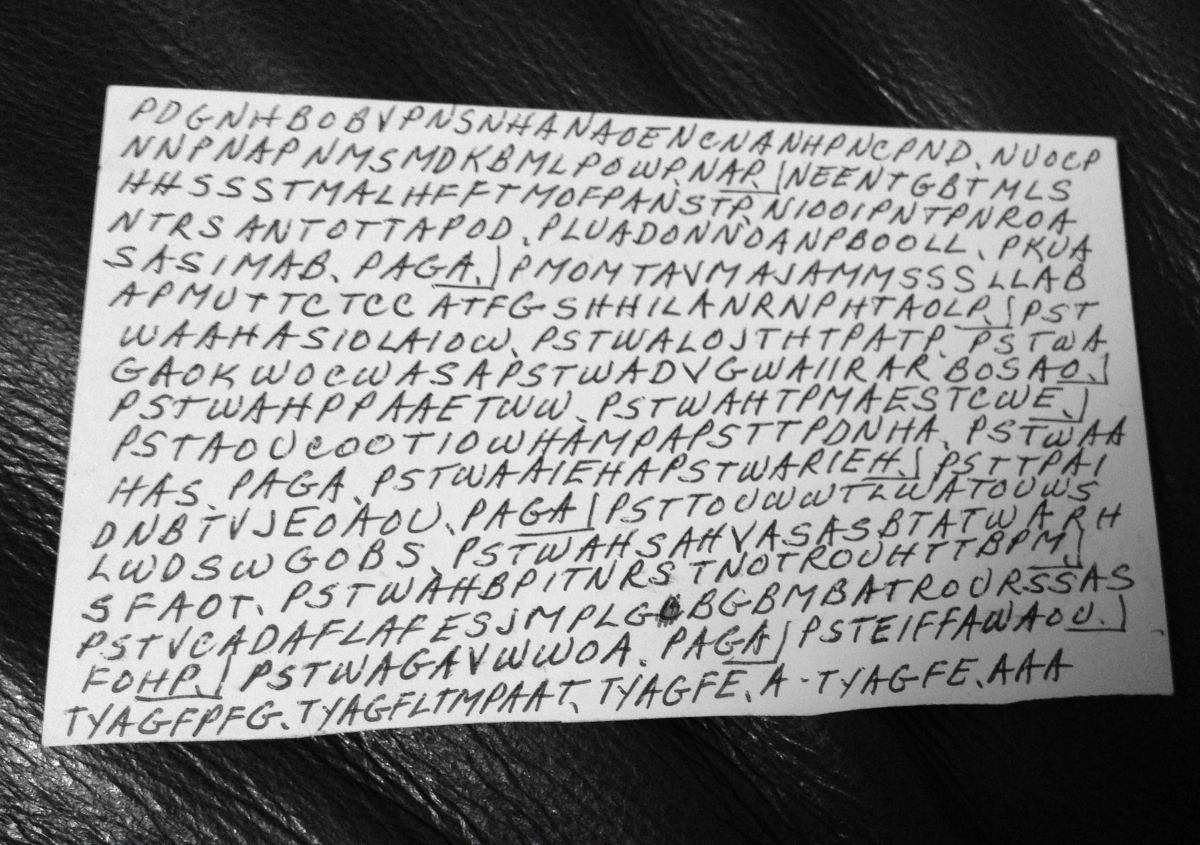 PDGNHBOBVPNSNHANAOENCNANHPNCPND, NUOCP
NNPNAPNMSMDKBMLPOWP, NAP,] NEENTGBTMLS
HHSSSTMALHFFTMOFPANSTP, NIOOIPNTPNROA
NTRSANTOTTAPOD, PLUADONNOANPBOOLL, PKUA
SASIMAB, PAGA,] PMOMTAVMAJAMMSSSLLAB
APMUTTCTCCATFGSHHILANRNPHTAOLP,] PST
WAAHASIOLAIOW, PSTWALOJTHTPATP, PSTWA
GAOKWOCWASAPSTWADVGWAIIRAR BOSAO,]
PSTWAHPPAAETWW, PSTWAHTPMAESTCWE,]
PSTAOUCOOTIOWHAMPAPSTTPDNHA, PSTWAA
HAS, PAGA, PSTWAAIEHAPSTWARIEH,] PSTTPAI
DNBTVJEOAOU, PAGA] PSTTOUWWTLWATOUWS
LWDSWGOBS, PSTWAHSAHVASASBTATWARH
SFAOT, PSTWAHBPITNRSTNOTROUHTTBPM,]
PSTVCADAFLAFESJMPLGBGBMBATROURSSAS
FOHP,] PSTWAGAVWWOA, PAGA] PSTEIFFAWAOU,]
TYAGFPFG, TYAGFLTMPAAT, TYAGFE, A-TYAGFE, AAA